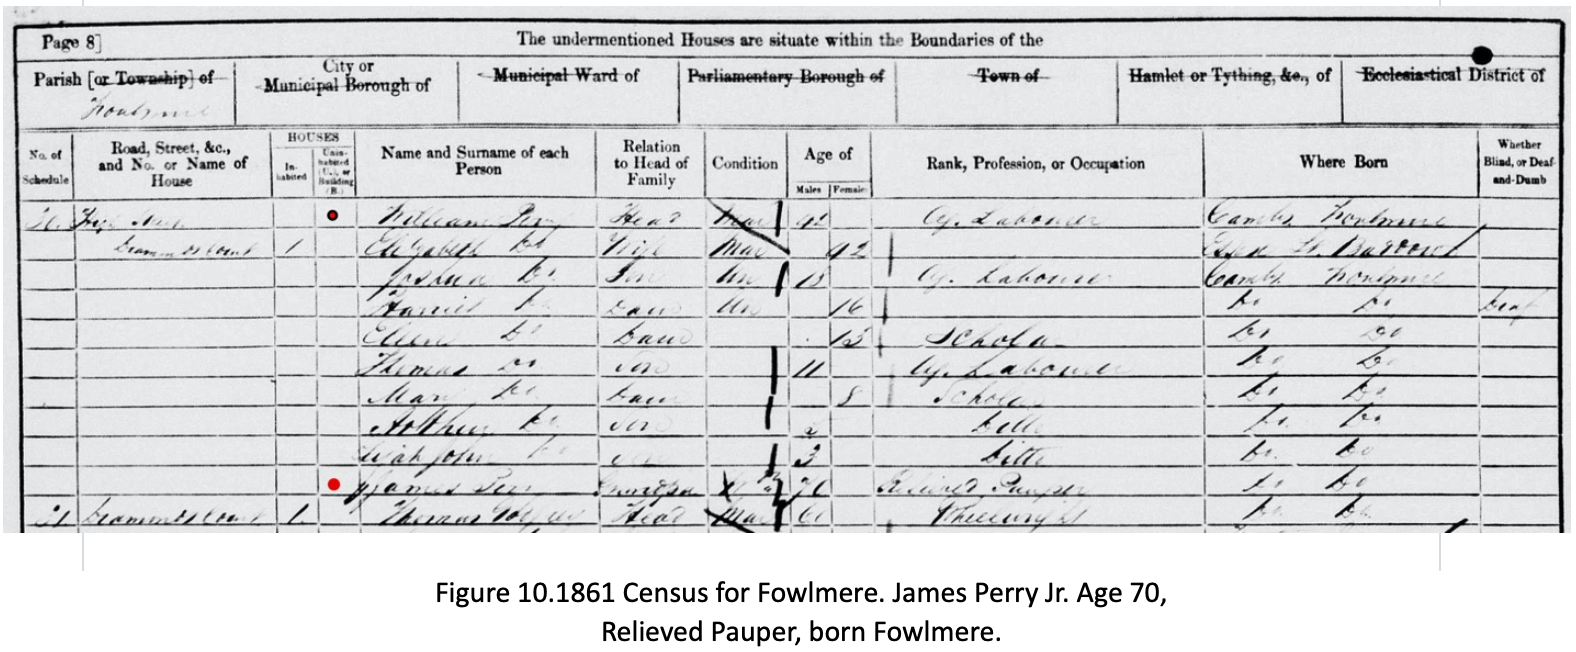 Page 8]
The undermentioned Houses are situate within the Boundaries of the
Parish [or Township] of
City or Municipal Borough of
Municipal Ward of
Parliamentary Borough of
Town of
Hamlet or Tything, &c., of
Ecclesiastical District of
No. of Schedule
Road, Street, &c., and No. or Name of House
HOUSES
Inhabited
Uninhabited (U.), or Building (B.)
Name and Surname of each Person
Relation to Head of Family
Condition
Age of
Males
Females
Rank, Profession, or Occupation
Where Born
Whether Blind, or Deaf-and-Dumb
William Perry Head Mar 42 Ag. Labourer Cambs
1 Elizabeth Do Wife Mar 42 Essex
Joshua Do Son Un 18 Ag. Labourer Cambs
Harriet Do Daur Un 16 Do Do Deaf
Ellen Do Daur 13 Scholar Do Do
Thomas Do Son 11 Ag. Labourer Do Do
Mary Do Daur 8 Scholar Do Do
Arthur Do Son Do Do
John Do 3 Do Do
James Perry 70 Relieved Pauper Do Do
31 1 Thomas Head Mar Wheelwright Do Do
Figure 10.1861 Census for Fowlmere. James Perry Jr. Age 70,
Relieved Pauper, born Fowlmere.